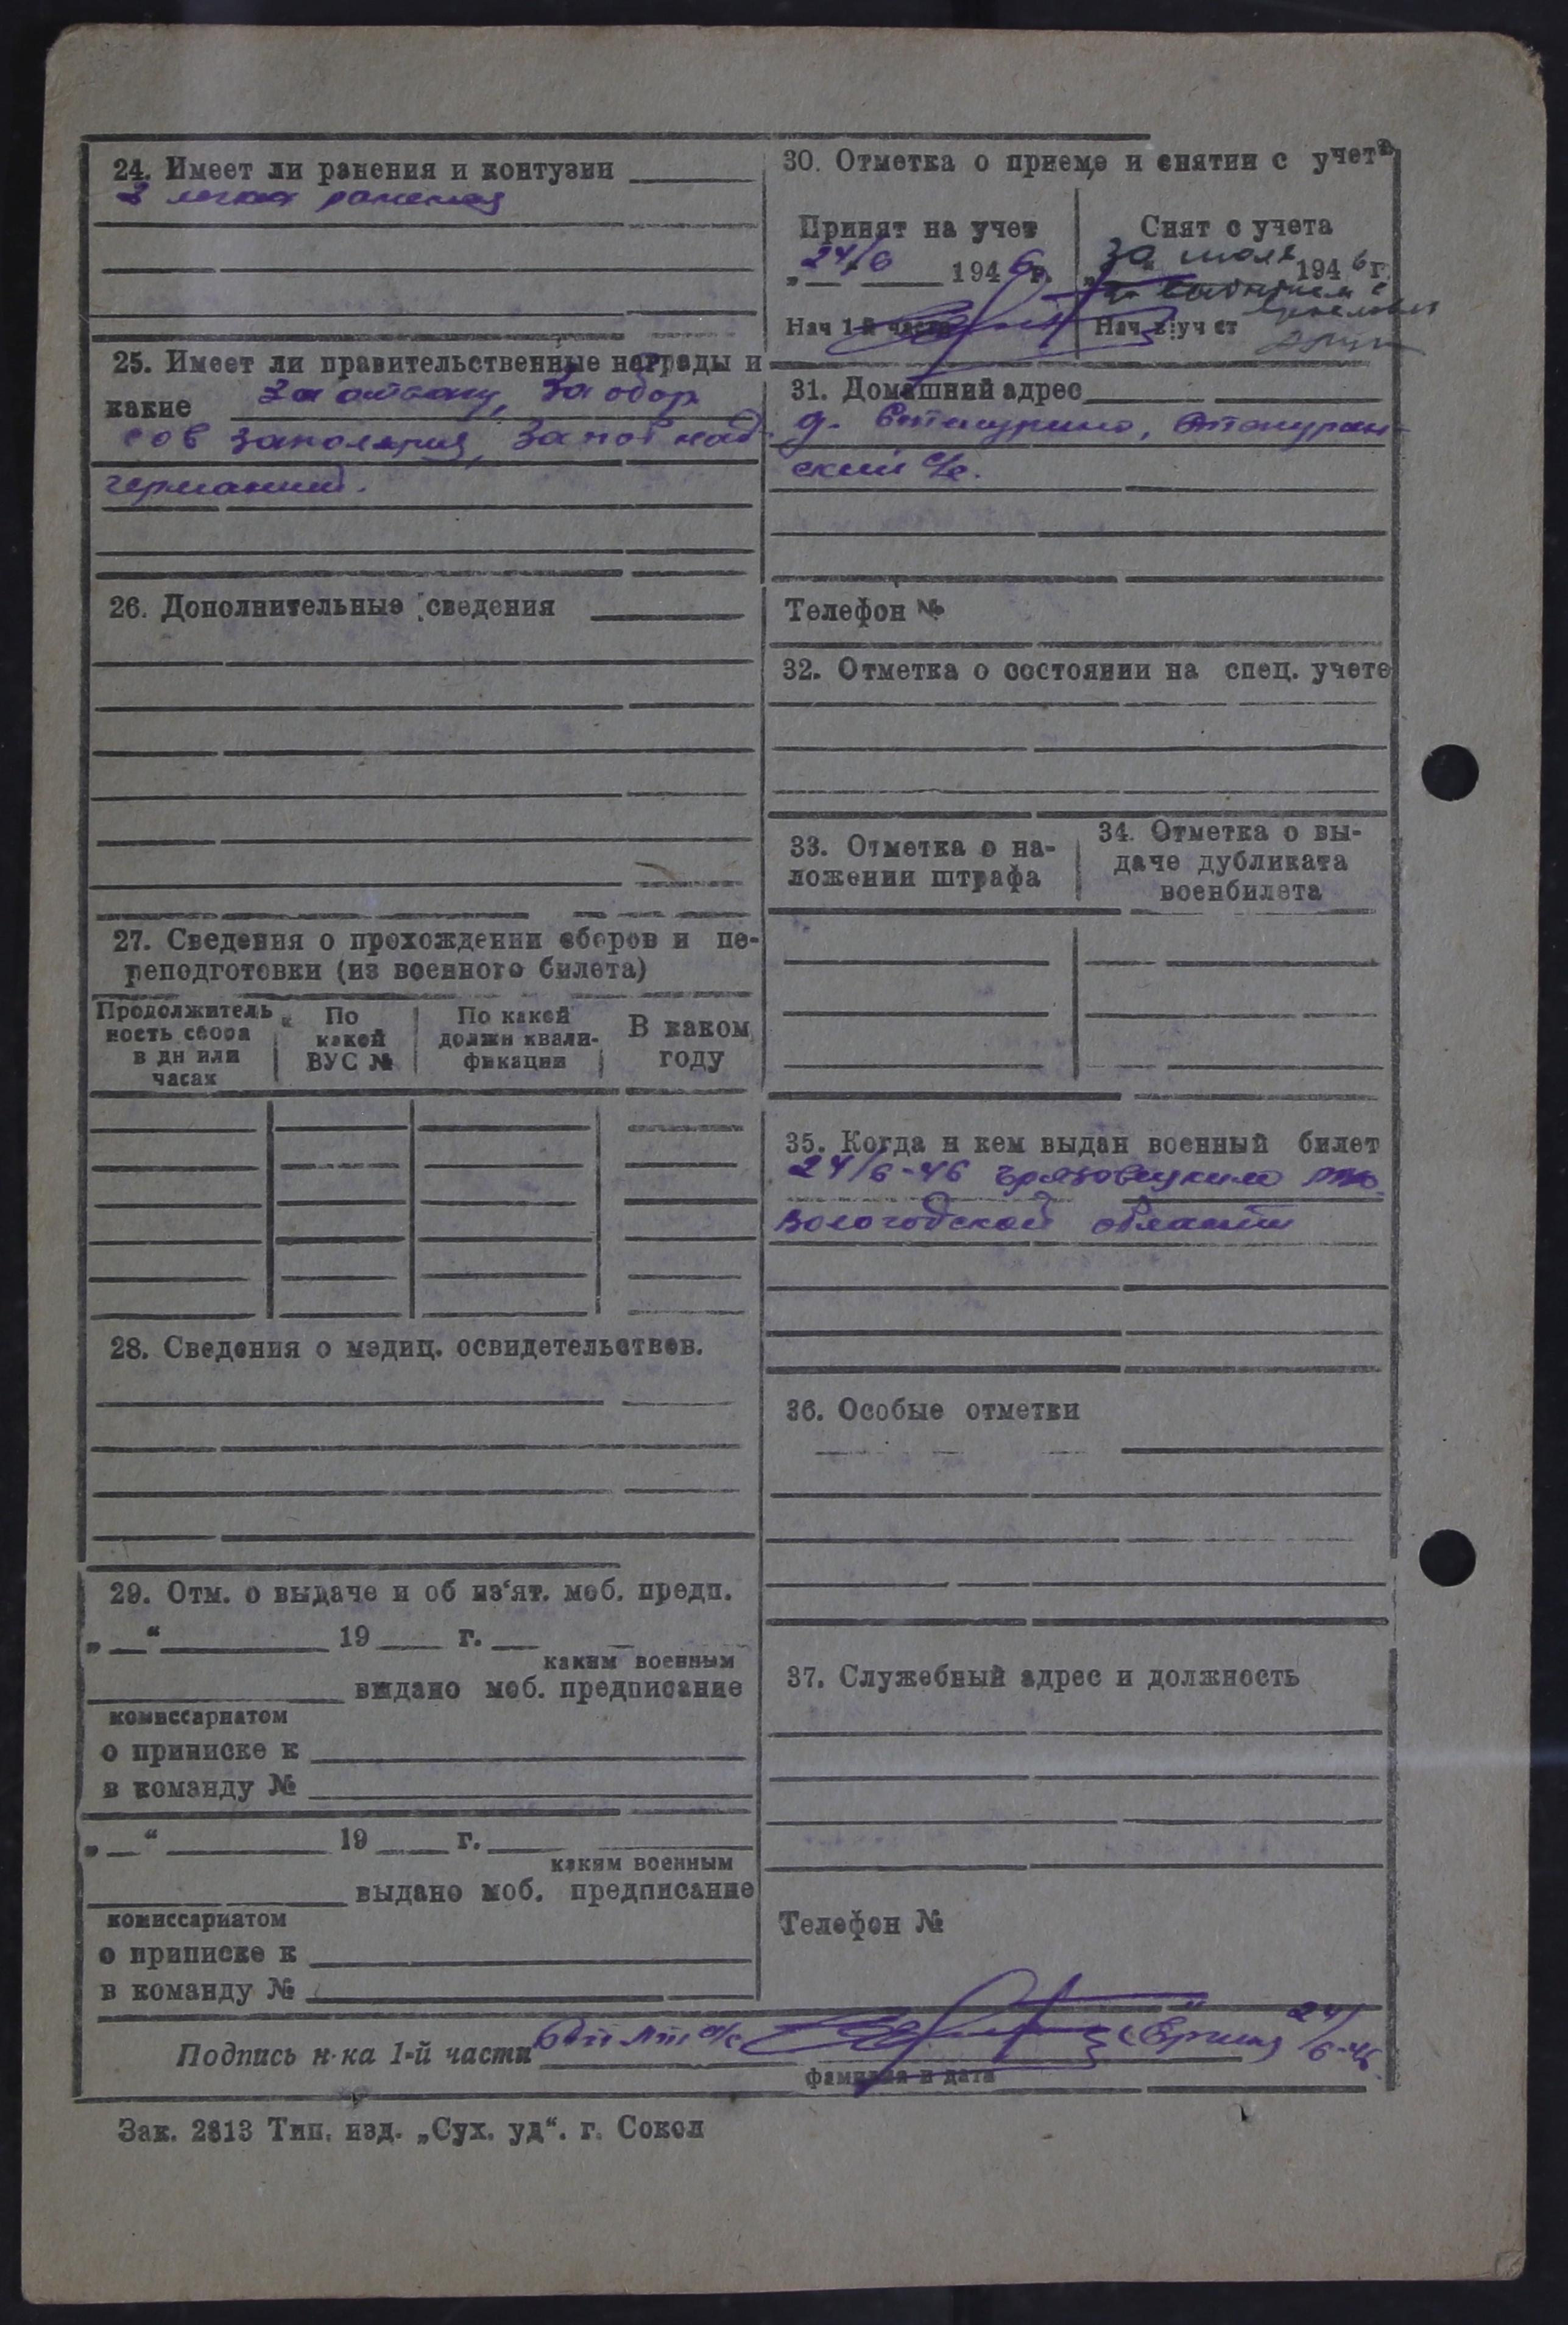 24. Имеет ли ранения и контузии
3 легких ранения
25. Имеет ли правительственные награды и
какие За отвагу, За обор
сов заполярия, За поб над
германией.
26. Дополнительные сведения
27. Сведения о прохождении сборов и пе-
реподготовки (из военного билета)
Продолжитель
ность сбора
в дн или
часах
По
какой
ВУС №
По какой
должн квали-
фикации
В каком
году
28. Сведения о медиц. освидетельствов.
29. Отм. о выдаче и об из'ят. моб. предп.
„ “ 19 г.
каким военным
выдано моб. предписание
комиссариатом
о приписке к
в команду №
„ “ 19 г.
каким военным
выдано моб. предписание
комиссариатом
о приписке к
в команду №
30. Отметка о приеме и снятии с учета
Принят на учет
„24/6 1946 г.
Нач 1-й части
Снят с учета
30 июля 1946 г.
Нач в уч ст
31. Домашний адрес
д.
ский с/с.
Телефон №
32. Отметка о состоянии на спец. учете
33. Отметка о на-
ложении штрафа
34. Отметка о вы-
даче дубликата
военбилета
35. Когда и кем выдан военный билет
24/6-46 Грязовецким РВК
Вологодской области
36. Особые отметки
37. Служебный адрес и должность
Телефон №
Подпись н-ка 1-й части 24/6-46
фамилия и дата
Зак. 2813 Тип. изд. „Сух. уд“. г. Сокол